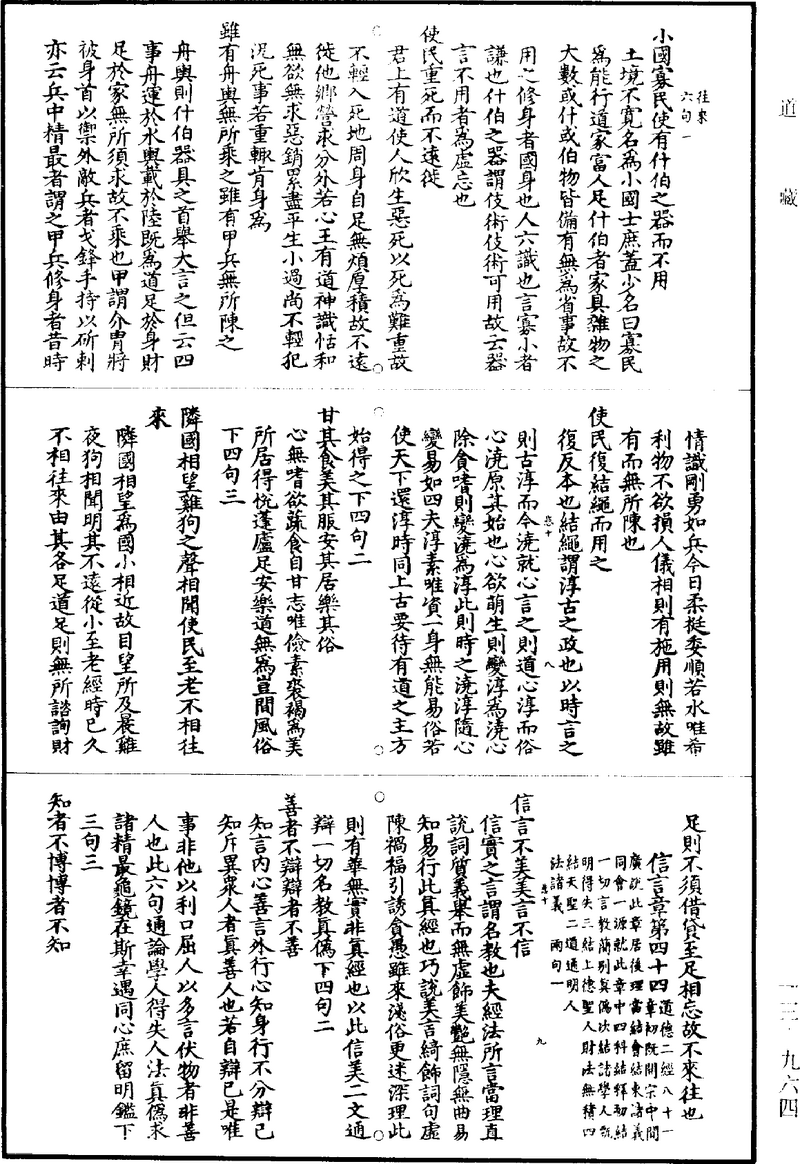 道藏
一三·九六四
往來
六句一
小國寡民使有什伯之器而不用
土境不寬名為小國士庶蓋少名曰寡民
為能行道家富人足什伯者家具雜物之
大數或什或伯物皆備有無為省事故不
用之修身者國身也人六識也言寡小者
謙也什伯之器謂伎術伎術可用故云器
言不用者為虛忘也
使民重死而不遠徙
君上有道使人欣生惡死以死為難重故
不輕入死地周身自足無煩厚積故不遠
徙他鄉營求分外若心王有道神識恬和
無欲無求惡銷累盡平生小過尚不輕犯
況死事若重輙肯身為
雖有舟輿無所乘之雖有甲兵無所陳之
舟輿則什伯器具之首舉大言之但云四
事舟運於水輿載於陸既為道足於身財
足於家無所須求故不乘也甲謂介冑將
被身首以禦外敵兵者戈鋒手持以斫刺
亦云兵中精最者謂之甲兵修身者昔時
情識剛勇如兵今日柔挺委順若水唯希
利物不欲損人儀相則有施用則無故雖
有而無所陳也
使民復結繩而用之
復反本也結繩謂淳古之政也以時言之
則古淳而今澆就心言之則道心淳而俗
心澆原其始也心欲萌生則變淳為澆心
除貪嗜則變澆為淳此則時之澆淳隨心
變易如四夫淳素唯資一身無能易俗若
使天下還淳時同上古要待有道之主方
始得之下四句二
甘其食美其服安其居樂其俗
心無嗜欲蔬食自甘志唯儉素裘褐為美
所居得悅蓬廬足安樂道無為豈間風俗
下四句三
隣國相望雞狗之聲相聞使民至老不相往
來
隣國相望為國小相近故目望所及晨雞
夜狗相聞明其不遠從小至老經時已久
不相往來由其各足道足則無所諮詢財
足則不須借貸至足相忘故不來往也
信言章第四十四
道德二經八十一
章初既開宗中間
廣說此章居後理當結會結東諸義
同會一源就此章中四科結釋初結
一切言教簡別真偽次結諸學人甄
明得失三結上德聖人財法無積四
結天聖二道通明人
法諸義 兩句一
信言不美美言不信
信實之言謂名教也夫經法所言當理直
說詞質義舉而無虛飾美艷無隱無曲易
知易行此真經也巧說美言綺飾詞句虛
陳禍福引誘貪愚雖來淺俗更迷深理此
則有華無實非真經也以此信美二文通
辯一切名教真偽下四句二
善者不辯辯者不善
知言內心善言外行心知身行不分辯己
知斥異眾人者真善人也若自辯己是唯
事非他以利口屈人以多言伏物者非善
人也此六句通論學人得失人法真偽求
諸精最龜鏡在斯幸遇同心庶留明鑑下
三句三
知者不博博者不知